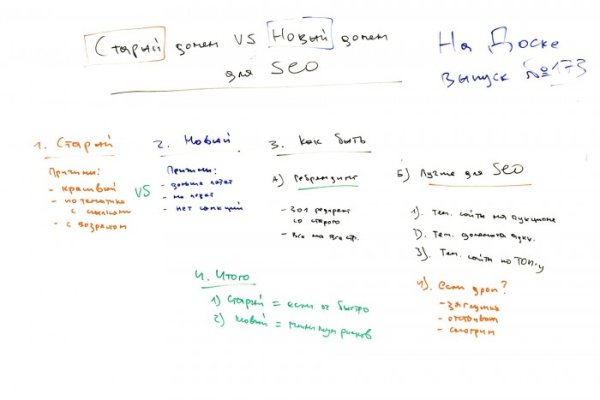 Старый домен VS Новый домен
для SEO
На Доске
выпуск №173
1. Старый
Причины:
- красивый
- по тематике
с ссылками
- с возрастом
VS
2. Новый
Причины:
- дольше
- нет санкций
3. Как быть
А) Ребрендинг
- 301 редирект
со старого
- Все на все стр.
Б) Лучше для SEO
1). Тем. сайты на аукционе
2). Тем. домены
3). Тем. сайты по ТОП-у
4). Если дроп?
- загнулся
- смотрим
4. Итого
1) Старый = если оч быстро
2) Новый = минимум рисков